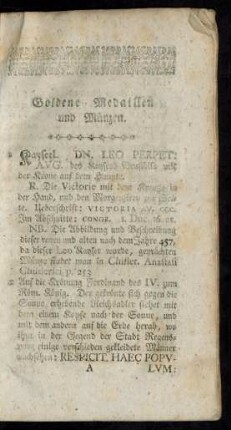 Goldene Medaillen
und Münzen.
Kayserl. DN. LEO PERPET:
AVG. des Kaysers Brustbild mit
der Krone auf dem Haupte.
R. Die Victorie mit dem Kreutz in
der Hand, und den Morgenstern zur
te. Ueberschrift: VICTORIA AV. CCC.
Im Abschnitte: CONOB. 1. Duc.
NB. Die Abbildung und Beschreibung
dieser raren und alten nach dem Jahre 457,
da dieser Leo Kayser wurde, gemachten
Münze findet man in
p. 253
Auf die Krönung Ferdinand des IV. zum
Röm. König. Der gekrönte sich gegen die
Sonne erhebende Reichsadler siehet mit
dem einem Kopfe nach der Sonne, und
mit dem andern auf die Erde herab, wo
ihm in der Gegend der Stadt Regens-
burg einige verschieden gekleidete Männer
nachsehen: RESPICIT HAEC POPV-
A LVM: